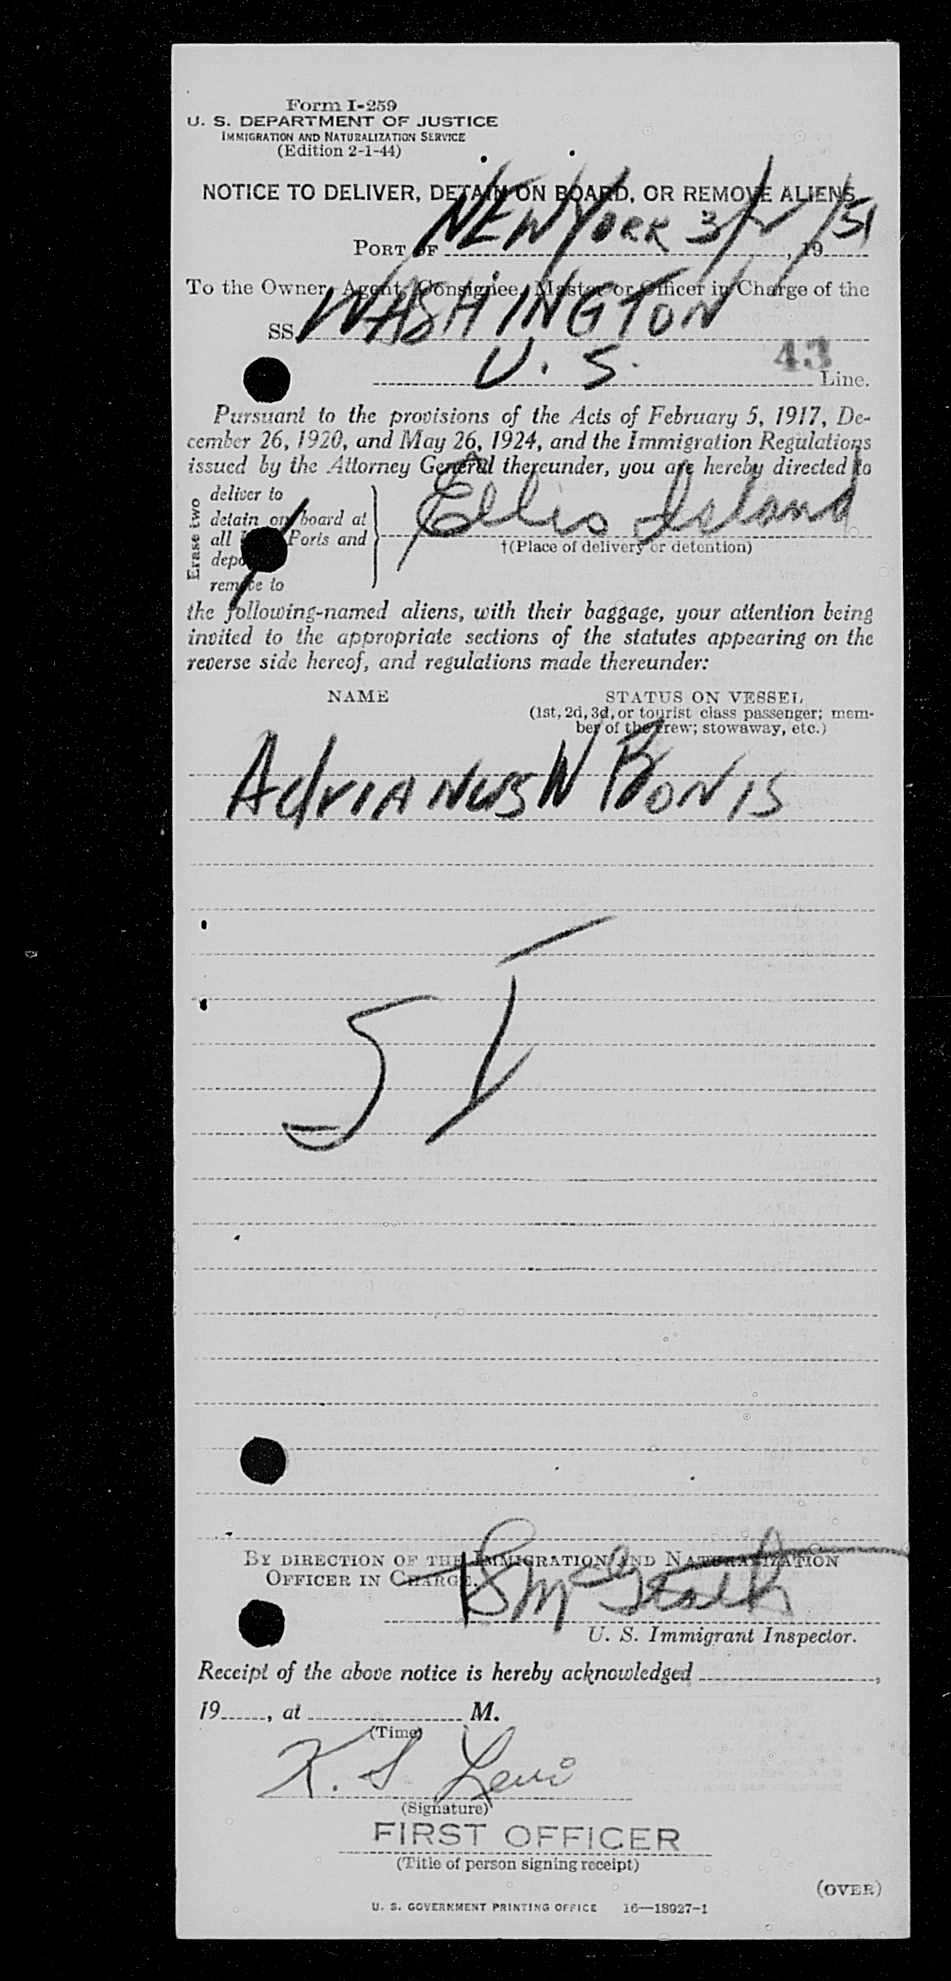 Form I-259
U. S. DEPARTMENT OF JUSTICE
IMMIGRATION AND NATURALIZATION SERVICE
(Edition 2-1-44)
NOTICE TO DELIVER, DETAIN ON BOARD, OR REMOVE ALIENS
PORT OF NEW YORK 3/2/51, 19
To the Owner, Agent, Consignee, Master or Officer in Charge of the
SS. WASHINGTON
43
U. S. Line.
Pursuant to the provisions of the Acts of February 5, 1917, De-
cember 26, 1920, and May 26, 1924, and the Immigration Regulations
issued by the Attorney General thereunder, you are hereby directed to
Erase two
deliver to
detain on board at
all Ports and
remove to
Ellis Island
†(Place of delivery or detention)
the following-named aliens, with their baggage, your attention being
invited to the appropriate sections of the statutes appearing on the
reverse side hereof, and regulations made thereunder:
NAME STATUS ON VESSEL
(1st, 2d, 3d, or tourist class passenger; mem-
ber of the crew; stowaway, etc.)
AdriANUS W BONIS
SI
BY DIRECTION OF THE IMMIGRATION AND NATURALIZATION
OFFICER IN CHARGE.
McGrath
U. S. Immigrant Inspector.
Receipt of the above notice is hereby acknowledged,
19, at M.
(Time)
K. S. Levi
(Signature)
FIRST OFFICER
(Title of person signing receipt)
(OVER)
U. S. GOVERNMENT PRINTING OFFICE 16—18927-1